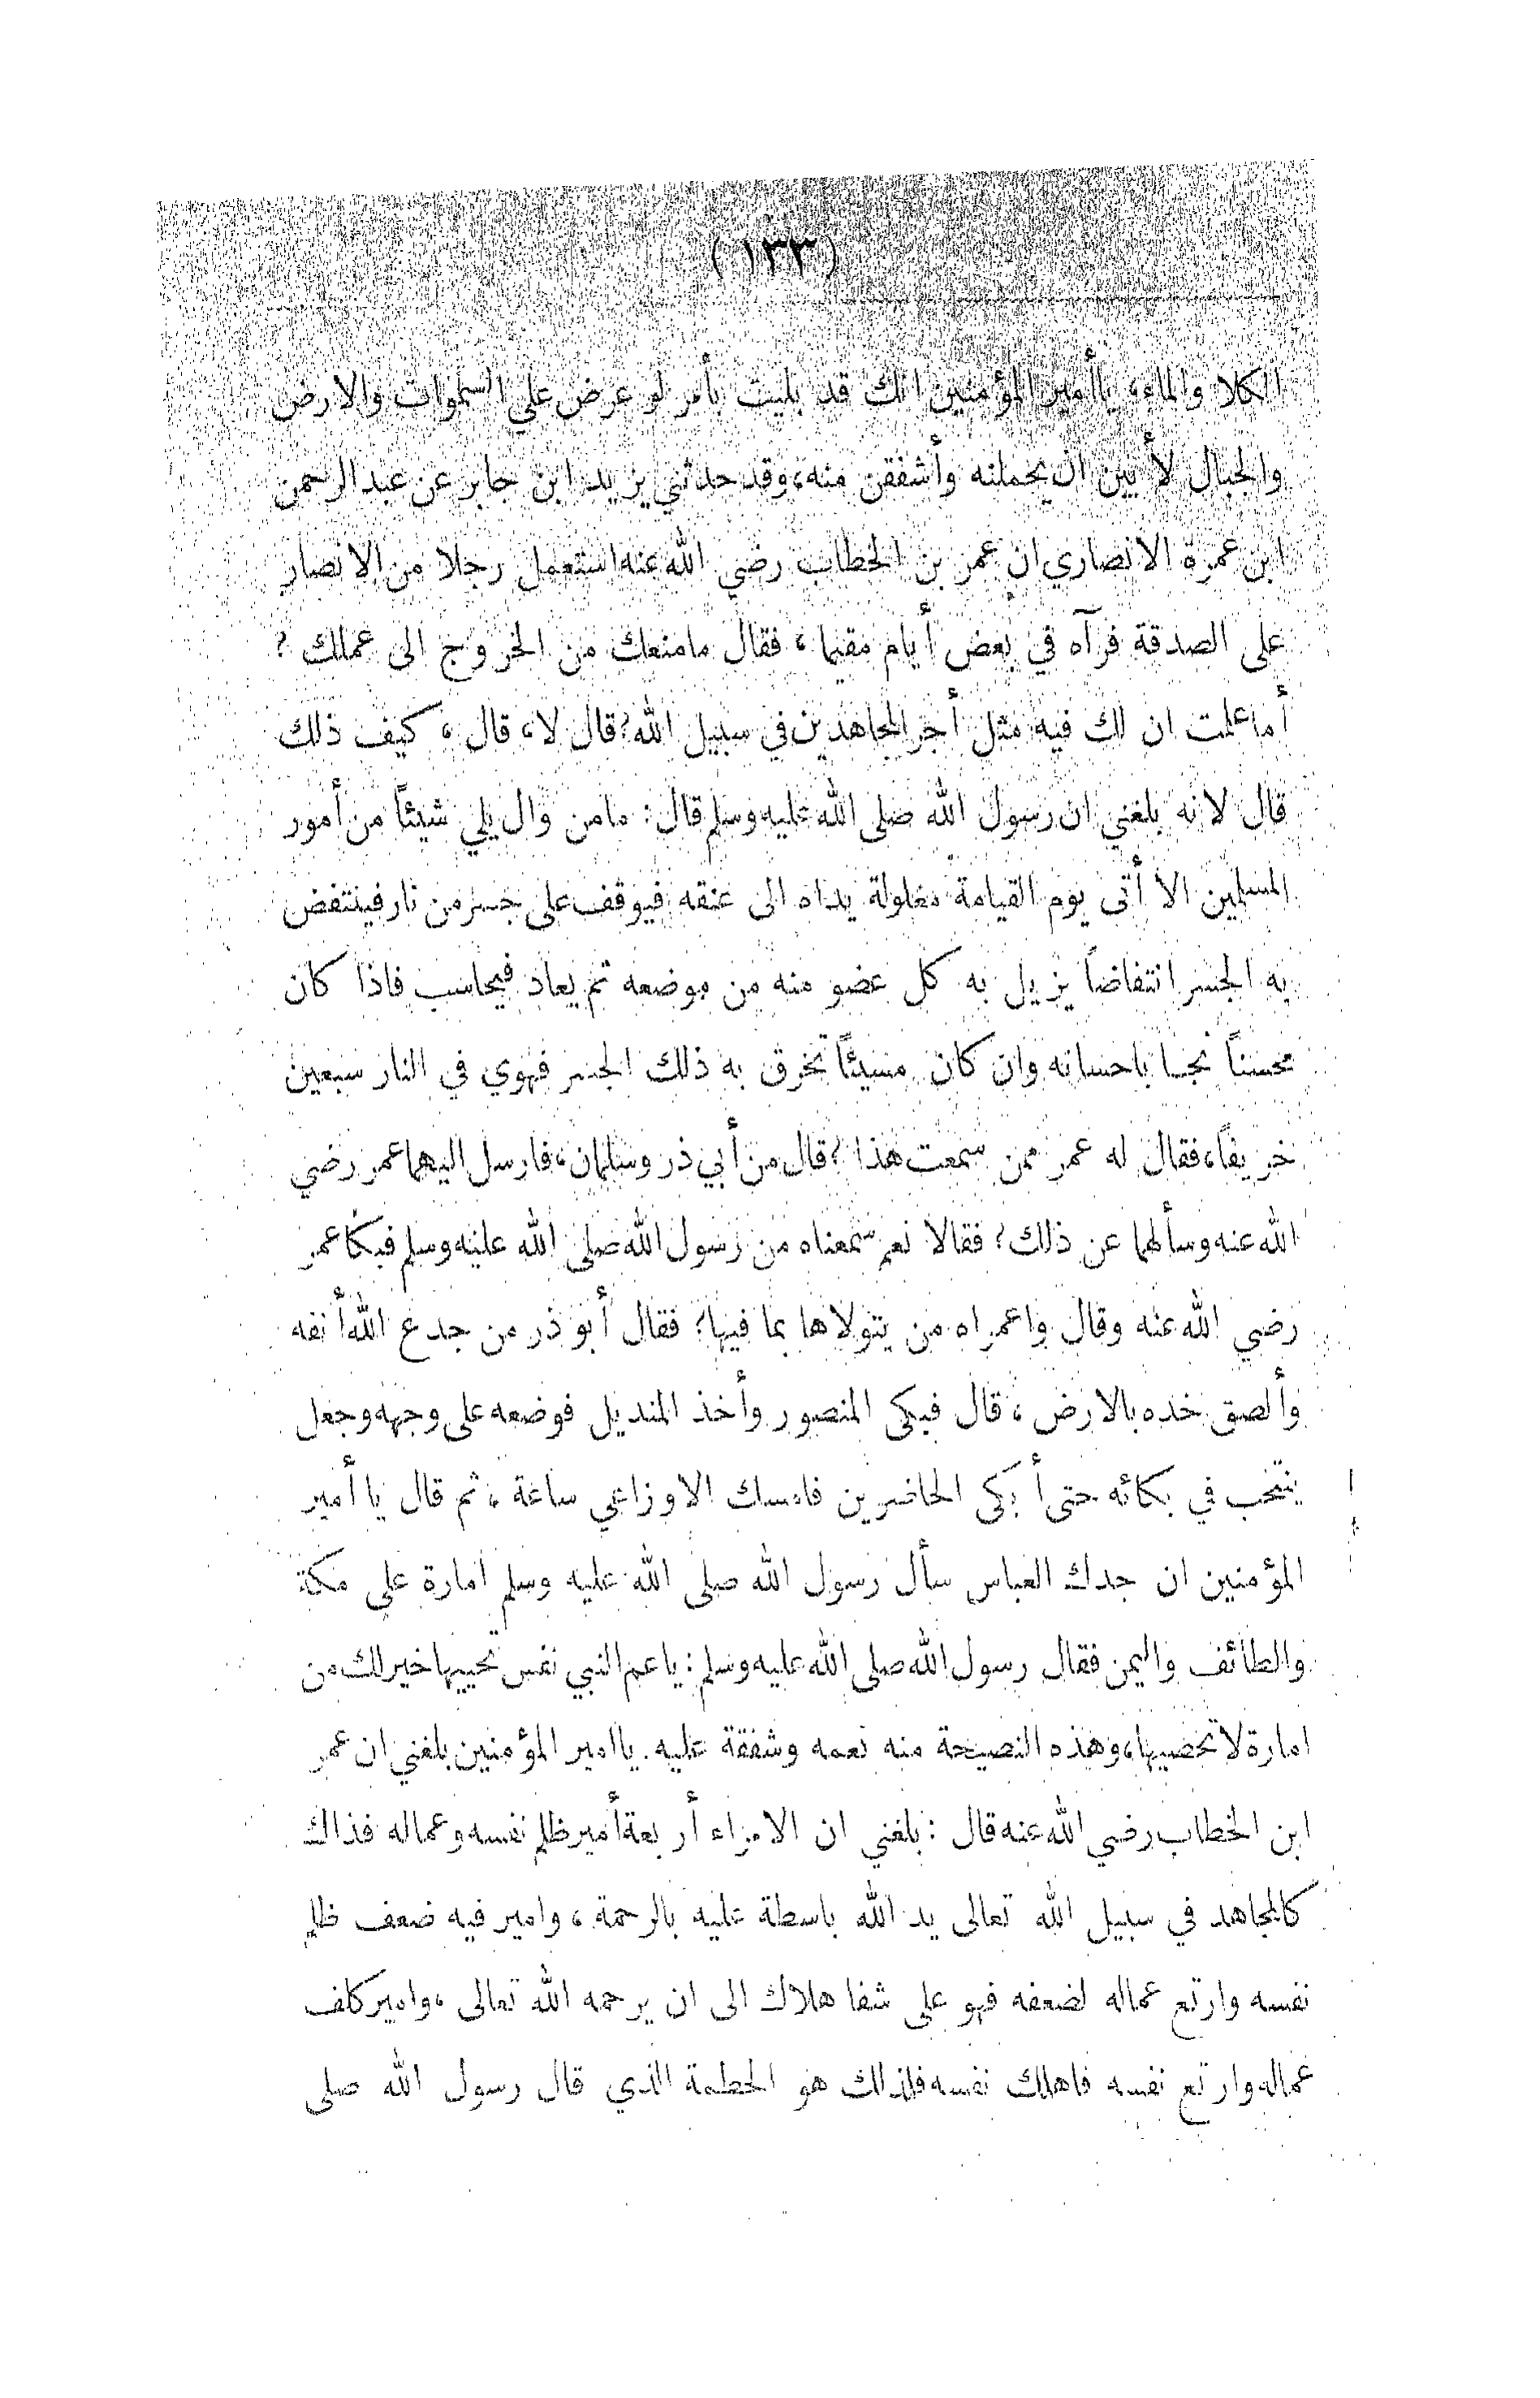 (١٣٣)
الكلا والماء، ياأمير المؤمنين انك قد بليت بأمر لو عرض على السموات والارض
والجبال لأبين ان يحملنه وأشفقن منه، وقد حدثني يزيد ابن جابر عن عبد الرحمن
ابن عمرة الانصاري ان عمر بن الخطاب رضي الله عنه استعمل رجلا من الانصار
على الصدقة فرآه في بعض أيام مقيما، فقال مامنعك من الخروج الى عملك ؟
أما علمت ان لك فيه مثل أجر المجاهدين في سبيل الله؟ قال لا، قال، كيف ذلك
قال لانه بلغني ان رسول الله صلى الله عليه وسلم قال: مامن وال يلي شيئاً من أمور
المسلمين الا أتى يوم القيامة مغلولة يداه الى عنقه فيوقف على جسر من نار فينتفض
به الجسر انتفاضاً يزيل به كل عضو منه من موضعه ثم يعاد فيحاسب فاذا كان
محسناً نجا باحسانه وان كان مسيئاً تخرق به ذلك الجسر فهوي في النار سبعين
خريفاً، فقال له عمر ممن سمعت هذا ؟ قال من أبي ذر وسلمان، فارسل اليهما عمر رضي
الله عنه وسألهما عن ذلك؟ فقالا نعم سمعناه من رسول الله صلى الله عليه وسلم فبكا عمر
رضي الله عنه وقال واعمراه من يتولاها بما فيها؟ فقال أبو ذر من جدع الله أنفه
وألصق خده بالارض، قال فبكى المنصور وأخذ المنديل فوضعه على وجهه وجعل
ينتحب في بكائه حتى أبكى الحاضرين فامسك الاوزاعي ساعة، ثم قال يا أمير
المؤمنين ان جدك العباس سأل رسول الله صلى الله عليه وسلم امارة على مكة
والطائف واليمن فقال رسول الله صلى الله عليه وسلم: ياعم النبي نفس تحييها خير لك من
امارة لا تحصيها، وهذه النصيحة منه نعمه وشفقة عليه. ياامير المؤمنين بلغني ان عمر
ابن الخطاب رضي الله عنه قال : بلغني ان الامراء أربعة أمير ظلم نفسه وعماله فذاك
كالمجاهد في سبيل الله تعالى يد الله باسطة عليه بالرحمة، وامير فيه ضعف ظلم
نفسه وارتع عماله لضعفه فهو على شفا هلاك الى ان يرحمه الله تعالى، وامير كلف
عماله وارتع نفسه فاهلك نفسه فلذلك هو الحطمة الذي قال رسول الله صلى